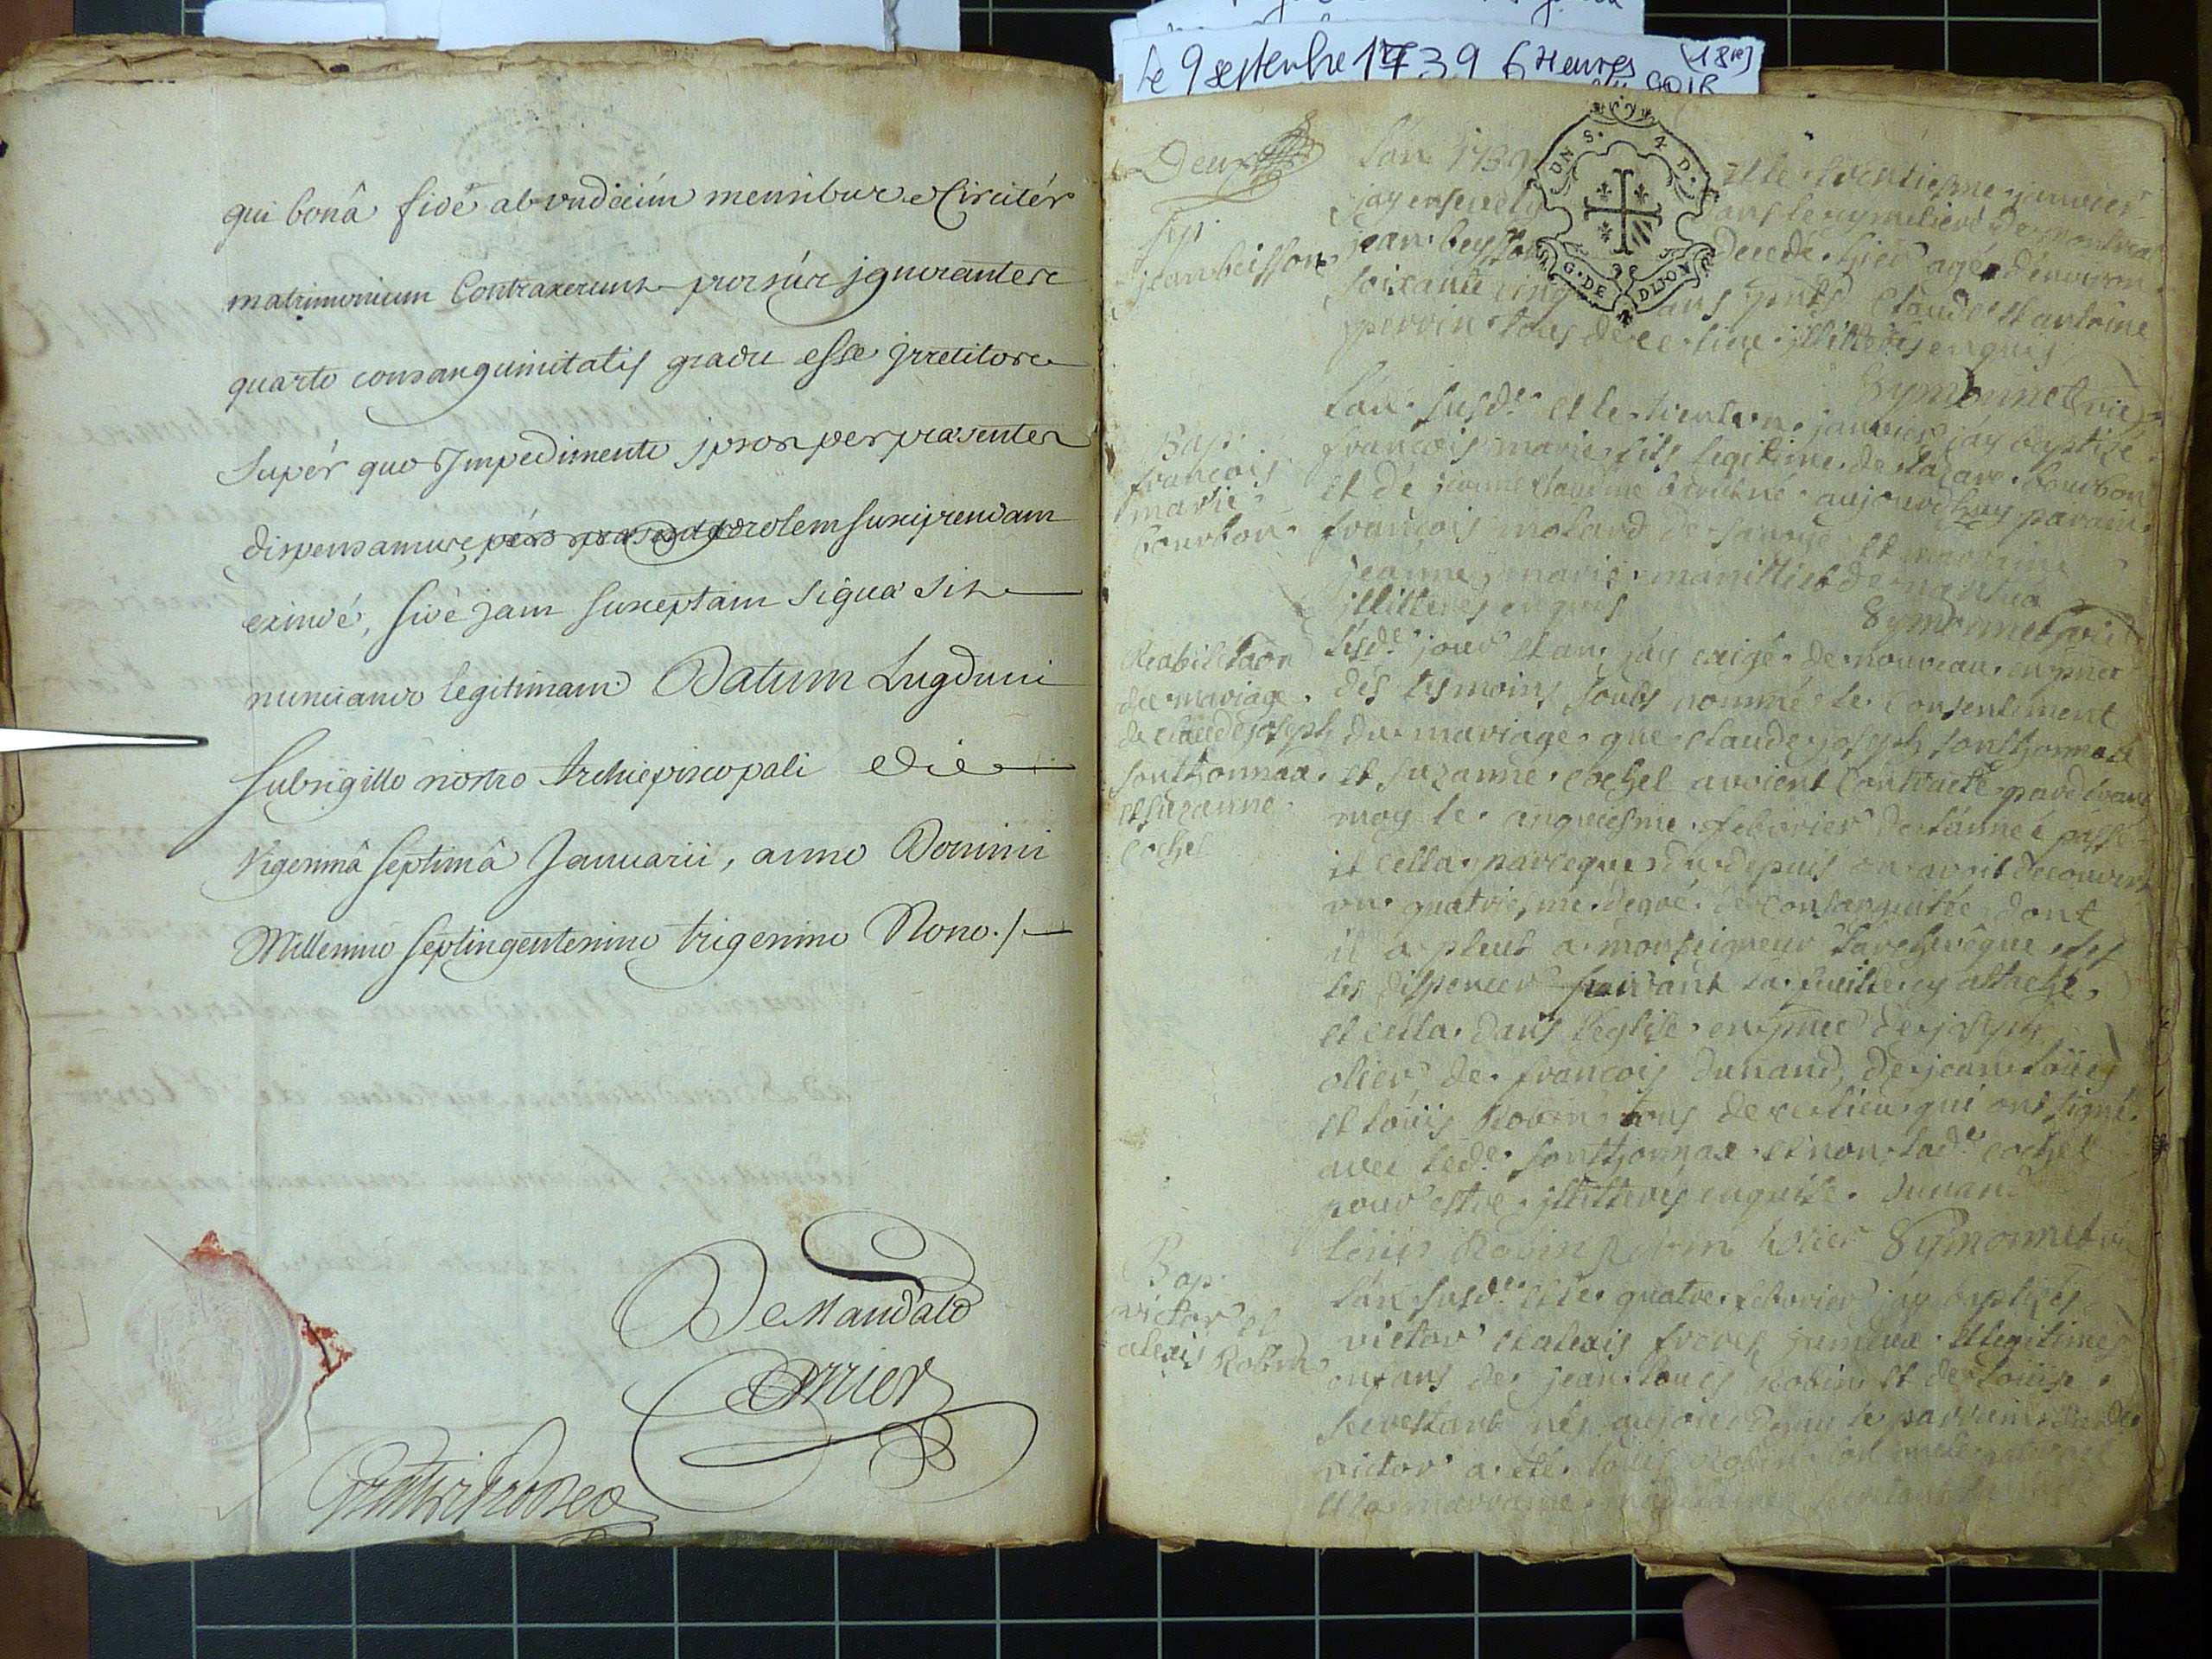 Le 9 septembre 1739 6 Heures (18e)
qui bonâ fidé ab undecim mensibus Circitér
matrimonium Contraxerunt prorsùs ignorantes
quarto consanguinitatis gradu esse irretitos
Supér quo Impedimento ipsos per præsentes
dispensamus, prolem suscipiendam
exindé, sivé jam susceptam siqua sit
nunciando legitimam. Datum Lugduni
sub sigillo nostro Archiepiscopali die
Vigesimâ septimâ Januarii, anno Domini
Millesimo septingentesimo trigesimo Nono./.
De Mandato
Deux
UN S. 4 D.
G. DE DIJON
Sep.
jean beisson
Lan 1739 et le trentiesme janvier
jay ensevely dans le cymetiere de
jean beysson decedé hier agé d'environ
soixante cinq ans pnts Claude et antoine
perrin tous de ce lieu illitterés enquis
Symonnet
Bap.
francois
marie
bourbon
Lan susd. et le trente un janvier jay baptizé
francois marie fils legitime de lazare bourbon
et de jeanne né aujourdhuy parain
francois molard de et marraine
jeanne marie de nantua
illitterés enquis Symonnet
Reabilitaôn
de mariage
de claude joseph
sonthonnax
et suzanne
cochet
Lesd. jour et an jay exigé de nouveau en pnce
des tesmoins soubs nommé le consentement
du mariage que claude joseph sonthonnax
et suzanne cochet avoient Contracté pardevant
moy le cinquiesme febvrier de lannée passé
et cella parceque du depuis on avoit decouvert
un quatriesme degré de consanguitée dont
il a pleut a monseigneur larchevêque de
les dispencer suivant la fueille cy attaché,
et cella dans l'eglise en pnce de joseph
olier, de francois dunand, de jean louis
et louis Robin tous de ce lieu qui ont signé
avec led. sonthonnax et non lad. cochet
pour estre illitterés enquise. Dunand
louis Robin Robin Olier Symonnet
Bap.
victor et
alexis Robin
Lan susd. et le quatre febvrier jay baptizés
victor et alexis freres jumeux et legitimes
enfans de jean louis Robin et de louise
nés aujourdhuy le parrain dud.
victor a été louis Robin
et la marraine